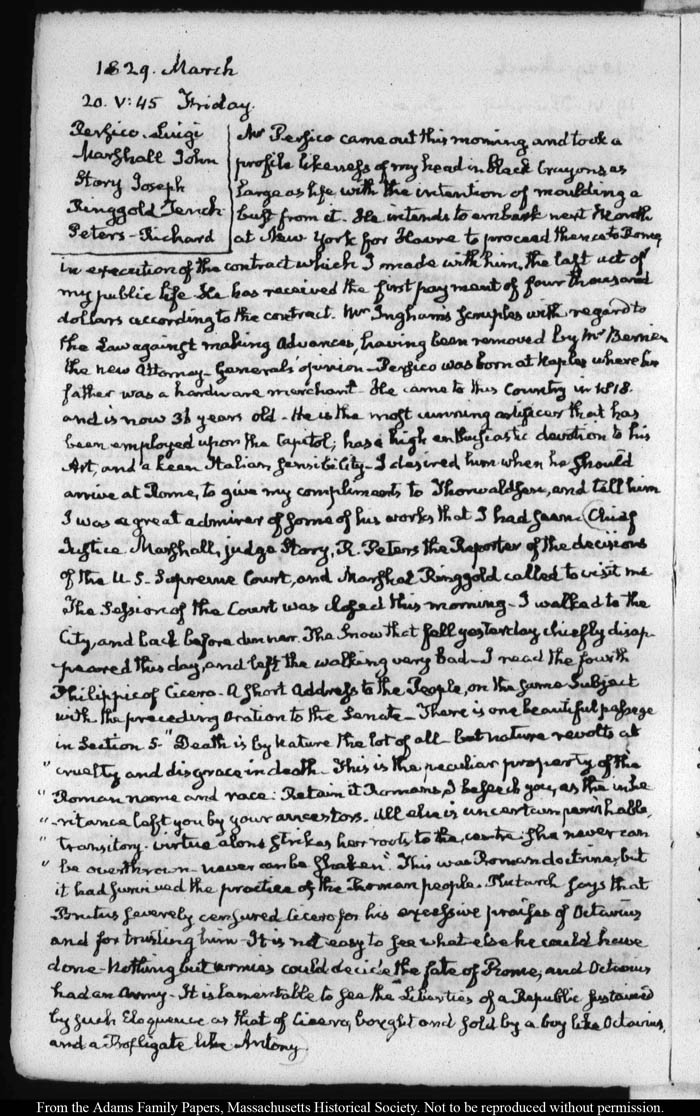 1829. March
20. V:45 Friday.
Persico Luigi
Marshall John
Story Joseph
Ringgold Tench
Peters-Richard
Mr Persico came out this morning and took a
profile likeness of my head in black Crayons as
large as life with the intention of moulding a
bust from it. He intends to embark next Month
at New York for Havre to proceed thence to Rome,
in execution of the contract which I made with him, the last act of
my public life. He has received the first payment of four thousand
dollars according to the contract. Mr Ingham's scruples with regard to
the Law against making Advances, having been removed by Mr Berrien
the new Attorney-General's opinion- Persico was born at Naples where his
father was a hardware merchant- He came to this Country in 1818.
and is now 36 years old- He is the most cunning artificer that has
been employed upon the Capitol; has a high enthusiastic devotion to his
Art, and a keen Italian sensibility- I desired him when he should
arrive at Rome, to give my compliments to Thorwaldsen, and tell him
I was a great admirer of some of his works that I had seen- Chief
Justice Marshall, judge Story, R. Peters the Reporter of the decisions
of the U.S. Supreme Court, and Marshal Ringgold called to visit me
The Session of the Court was closed this morning- I walked to the
City, and back before dinner. The Snow that fell yesterday chiefly disap-
peared this day, and left the walking very bad- I read the fourth
Philippic of Cicero- A short Address to the People, on the same Subject
with the preceding Oration to the Senate- There is one beautiful passage
in Section 5- "Death is by Nature the lot of all- but nature revolts at
" cruelty and disgrace in death- This is the peculiar property of the
" Roman name and race: Retain it Romans, I beseech you, as the inhe
" -ritance left you by your ancestors. All else is uncertain perishable,
" transitory. virtue alone strikes her roots to the centre- she never can
" be overthrown- never can be shaken". This was Roman doctrine, but
it had survived the practice of the Roman people. Plutarch says that
Brutus severely censured Cicero for his excessive praises of Octavius
and for trusting him- It is not easy to see what else he could have
done- Nothing but armies could decide the fate of Rome, and Octavius
had an Army- It is lamentable to see the Liberties of a Republic sustained
by such Eloquence as that of Cicero, bought and sold by a boy like Octavius,
and a Profligate like Antony
From the Adams Family Papers, Massachusetts Historical Society. Not to be reproduced without permission.